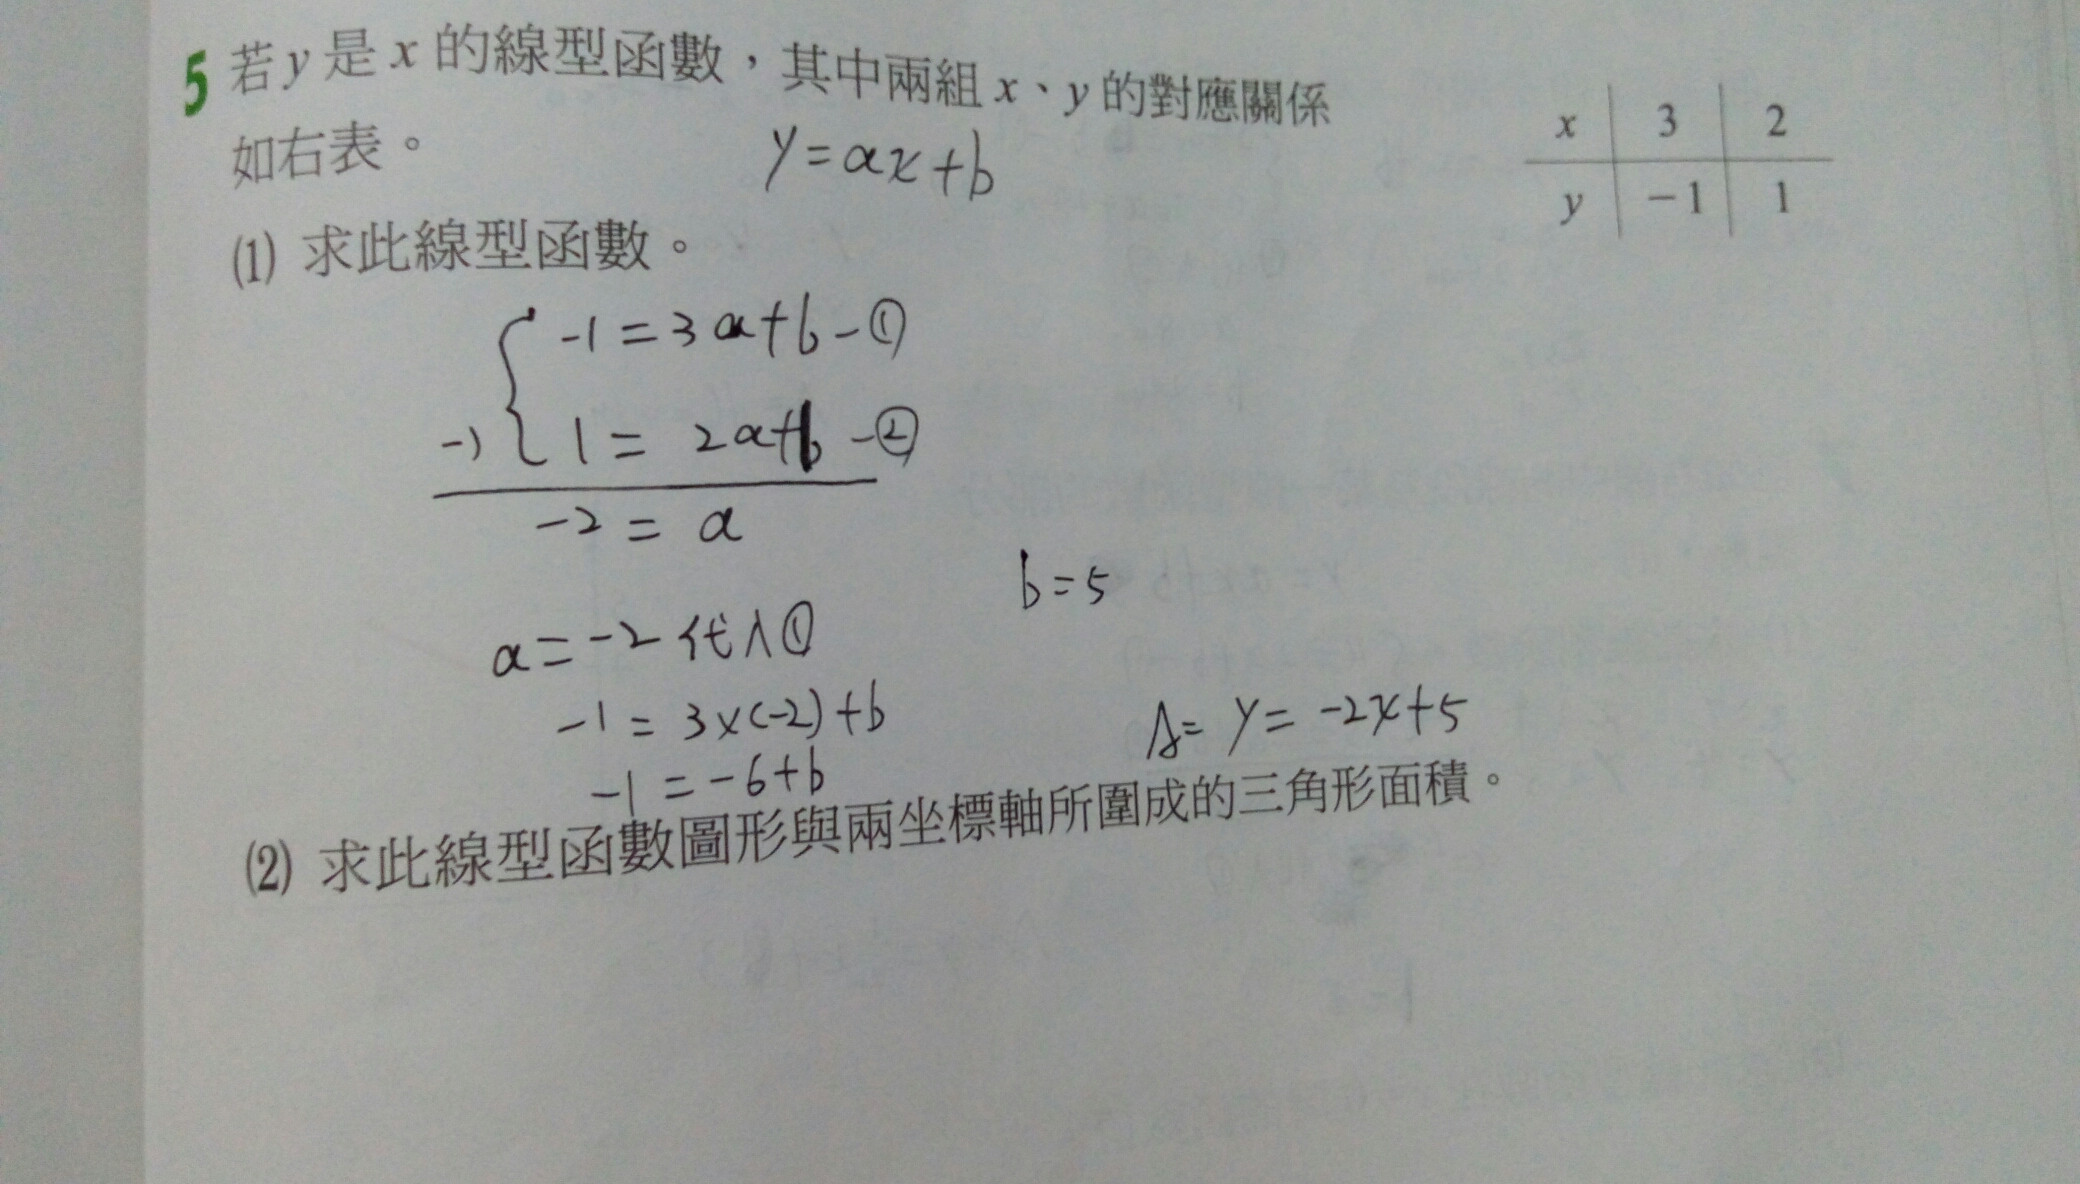 5 若y是x的線型函數，其中兩組x、y的對應關係
如右表。
y=ax+b
x 3 2
y -1 1
(1) 求此線型函數。
-1=3a+b-①
-) 1=2a+b-②
-2=a
b=5
a=-2代入①
-1=3×(-2)+b
A= y=-2x+5
-1=-6+b
(2) 求此線型函數圖形與兩坐標軸所圍成的三角形面積。